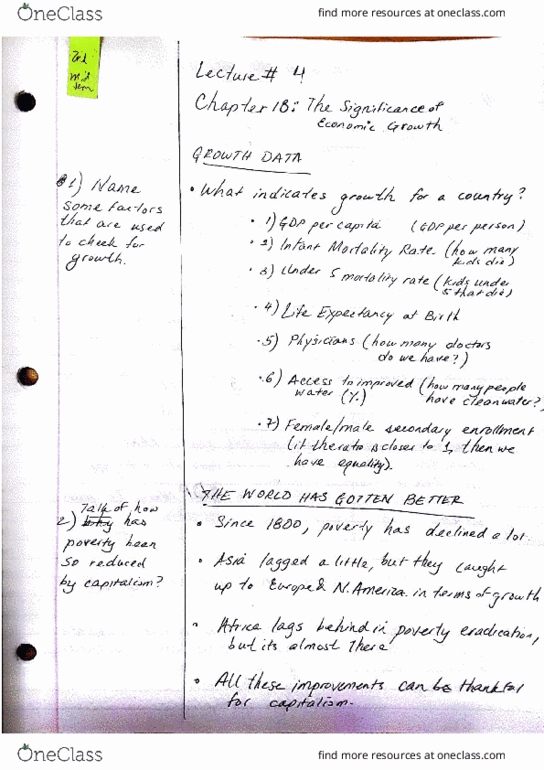 OneClass
find more resources at oneclass.com
2nd
mid
term
Lecture # 4
Chapter 18: The Significance of
Economic Growth
GROWTH DATA
1) Name
some factors
that are used
to check for
growth.
• What indicates growth for a country?
• 1) GDP per capita (GDP per person)
• 2) Infant Mortality Rate (how many
kids die)
• 3) Under 5 mortality rate (kids under
5 that die)
• 4) Life Expectancy at Birth
• 5) Physicians (how many doctors
do we have?)
• 6) Access to improved (how many people
water (%) have clean water?)
• 7) Female/male secondary enrollment
(if the ratio is closer to 1, then we
have equality).
2) Talk of how
why has
poverty been
so reduced
by capitalism?
THE WORLD HAS GOTTEN BETTER
• Since 1800, poverty has declined a lot.
• Asia lagged a little, but they caught
up to Europe & N. America in terms of growth
• Africa lags behind in poverty eradication,
but its almost there
• All these improvements can be thankful
for capitalism.
OneClass
find more resources at oneclass.com